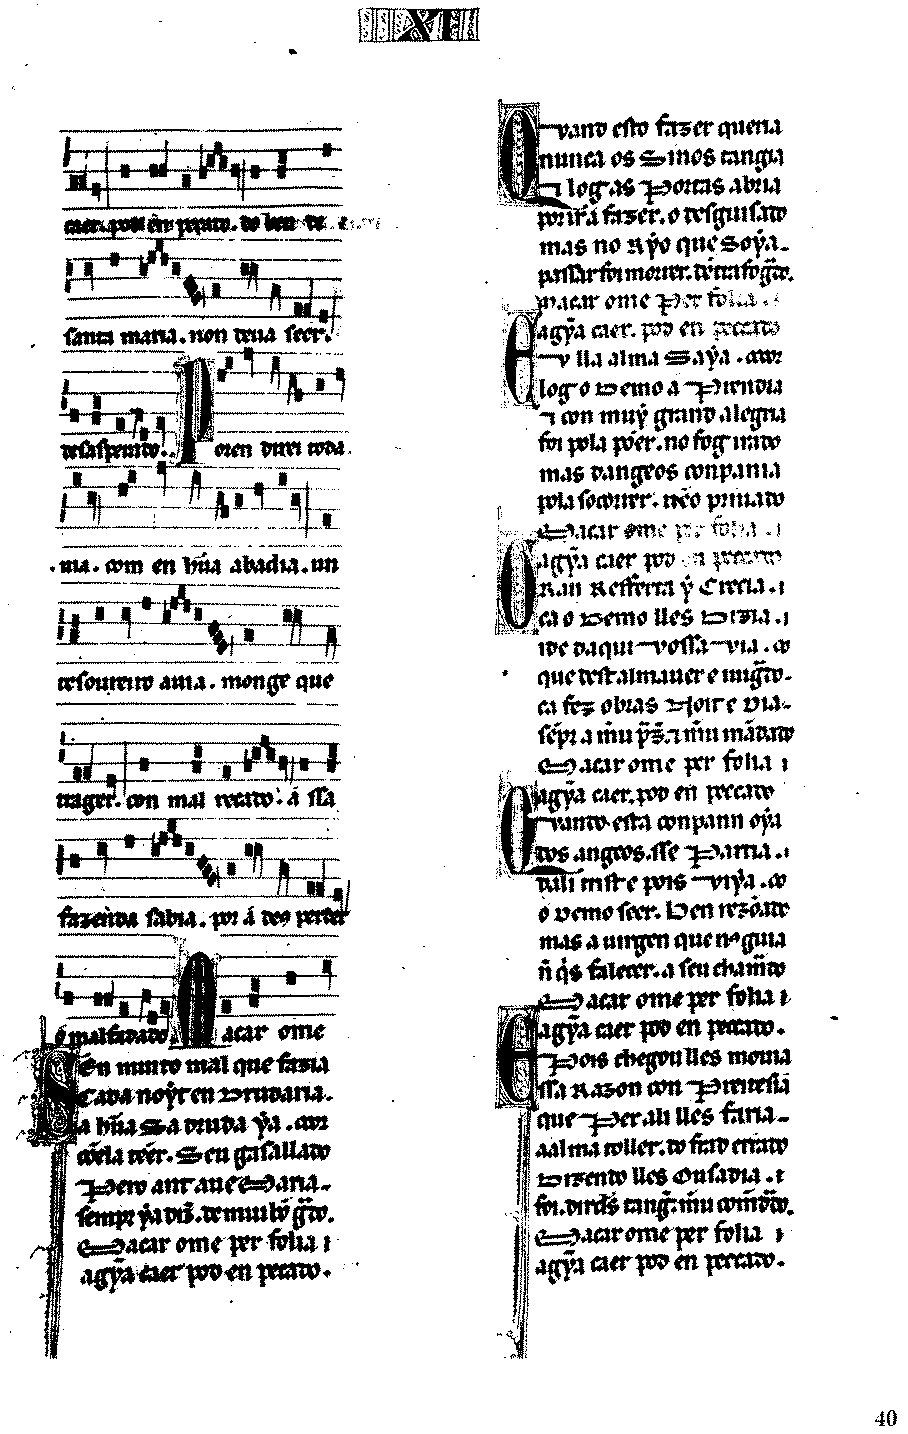 XI
caer. pod en pecado. do ben de
santa maria. non deua seer.
desasperado. Poren direi toda
uia. com en hũa abadia. un
tesoureiro auia. monge que
trager. con mal recado. á ssa
fazenda sabia. por á deos perder
o malfadado. Macar ome
Sen muito mal que fazia
cada noyt en drudaria.
a hũa Sa druda ẏa. con
ela tẽer. Seu gasallado
Pero ant aue Maria.
sempr ẏa diz. de mui bõ grado.
Macar ome per folia
agẏa caer pod en pecado.
Quando esto fazer queria
nunca os Sinos tangia
⁊ log as Portas abria
por ir á fazer. o desguisado
mas no Rẏo que Soẏa.
passar foi morrer. dentr afogado.
Macar ome Per folia
agẏa caer. pod en pecado
E u ll a alma Saẏa .
log o Demo a Prendia
⁊ con muẏ grand alegria
foi pola põer. no fog irado
mas dangeos conpania
pola socorrer. uẽo priuado
Macar ome per folia
agẏa caer pod en pecado
Gran Refferta ẏ Crecia.
ca o Demo lles Dizia.
ide daqui vossa via.
que dest alma uer e iuigado.
ca fez obras Noit e Dia.
sempr a meu prazer. ⁊ meu mandado
Macar ome per folia
agẏa caer. pod en pecado
Quando esta conpann oẏa
dos angeos. sse Partia.
dali trist e pois viẏa.
o demo seer. Ben rezõado
mas a uirgen que nos guia
non quis falecer. a seu chamado
Macar ome per folia
agẏa caer pod en pecado.
E Pois chegou lles mouia
ssa Razon con Preitesia
que Per ali lles faria.
a alma toller. do frad errado
Dizendo lles Ousadia.
foi. dirdes tanger. meu comendado.
Macar ome per folia
agẏa caer pod en pecado.
40